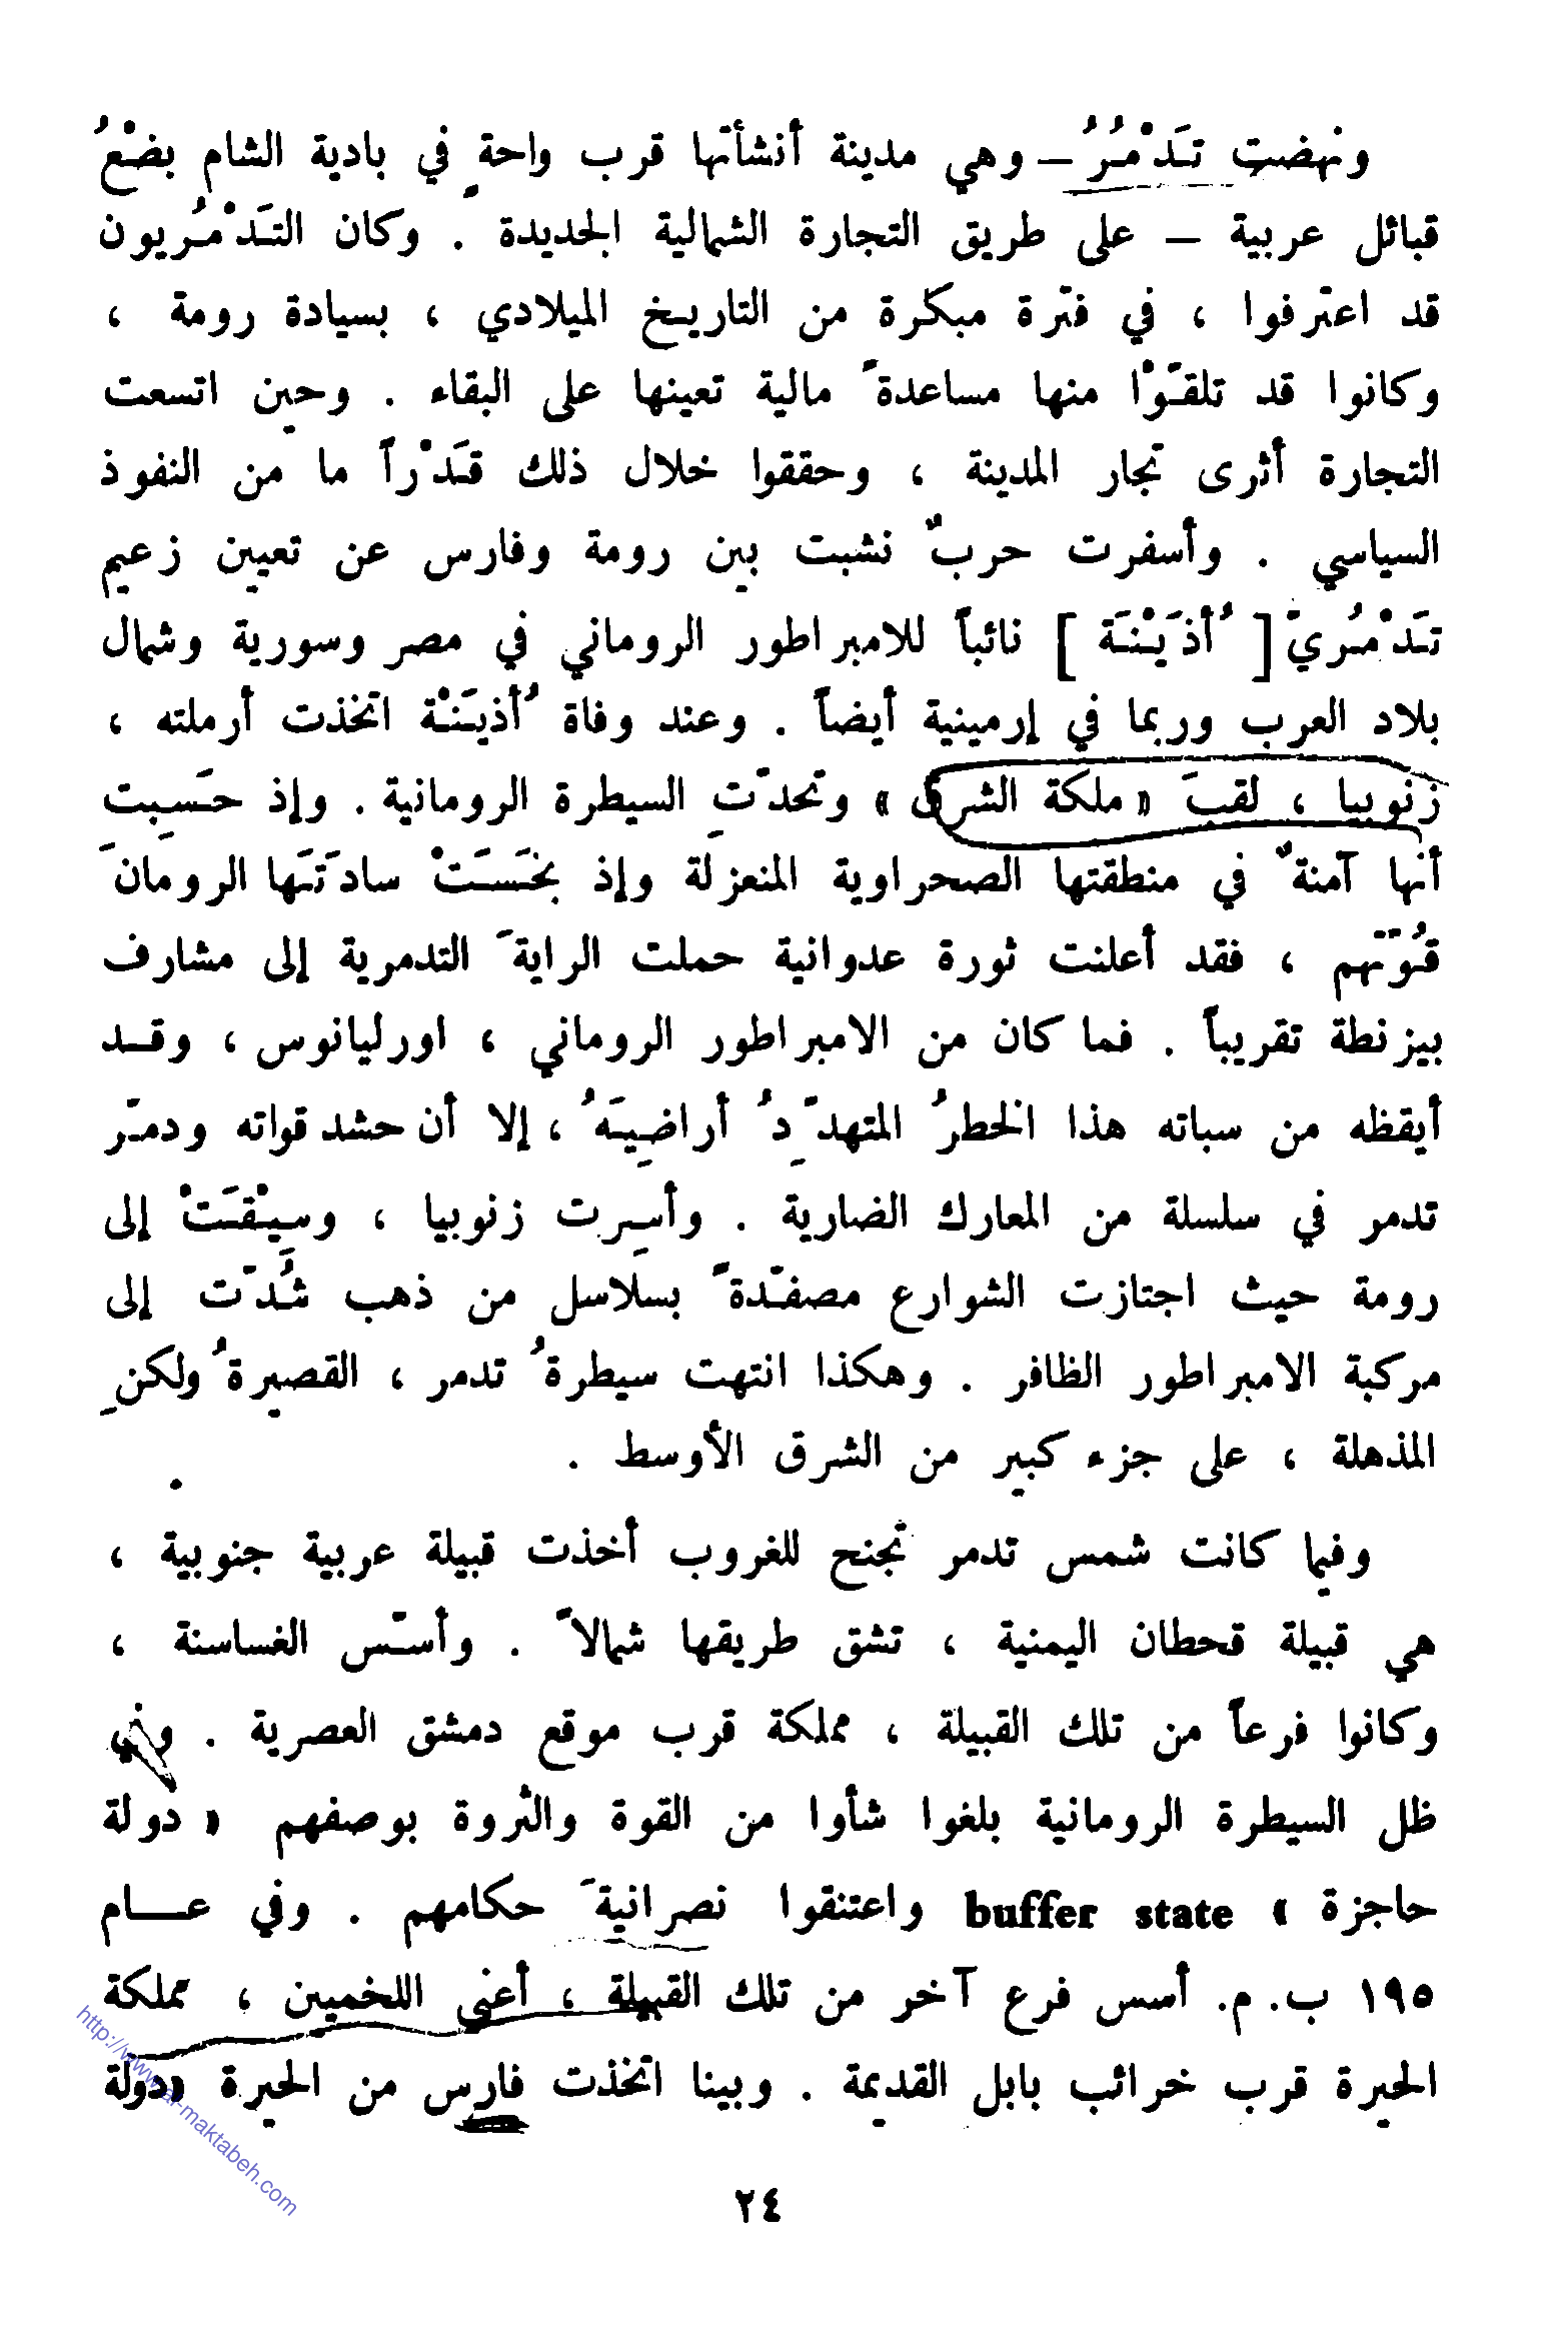 ونهضت تَدْمُرُ – وهي مدينة أنشأتها قرب واحةٍ في بادية الشام بضْعُ
قبائل عربية – على طريق التجارة الشمالية الجديدة . وكان التَدْمُريون
قد اعترفوا ، في فترة مبكرة من التاريخ الميلادي ، بسيادة رومة ،
وكانوا قد تلقَّوْا منها مساعدةً مالية تعينها على البقاء . وحين اتسعت
التجارة أثرى تجار المدينة ، وحققوا خلال ذلك قَدْراً ما من النفوذ
السياسي . وأسفرت حربٌ نشبت بين رومة وفارس عن تعيين زعيم
تَدْمُريّ [ أُذَيْنَة ] نائباً للامبراطور الروماني في مصر وسورية وشمال
بلاد العرب وربما في إرمينية أيضاً . وعند وفاة أُذيَنْة اتخذت أرملته ،
زنوبيا ، لقبَ « ملكة الشرق » وتحدّتِ السيطرة الرومانية . وإذ حَسِبت
أنها آمنةٌ في منطقتها الصحراوية المنعزلة وإذ بخَسَتْ سادَتَها الرومانَ
قُوّتَهم ، فقد أعلنت ثورة عدوانية حملت الرايةَ التدمرية إلى مشارف
بيزنطة تقريباً . فما كان من الامبراطور الروماني ، اورليانوس ، وقد
أيقظه من سباته هذا الخطرُ المتهدِّدُ أراضِيَهُ ، إلا أن حشد قواته ودمّر
تدمر في سلسلة من المعارك الضارية . وأسِرت زنوبيا ، وسِيْقَتْ إلى
رومة حيث اجتازت الشوارع مصفّدةً بسلاسل من ذهب شُدّت إلى
مركبة الامبراطور الظافر . وهكذا انتهت سيطرةُ تدمر ، القصيرةُ ولكنِ
المذهلة ، على جزء كبير من الشرق الأوسط .
وفيما كانت شمس تدمر تجنح للغروب أخذت قبيلة عربية جنوبية ،
هي قبيلة قحطان اليمنية ، تشق طريقها شمالاً . وأسّس الغساسنة ،
وكانوا فرعاً من تلك القبيلة ، مملكة قرب موقع دمشق العصرية . وفي
ظل السيطرة الرومانية بلغوا شأوا من القوة والثروة بوصفهم « دولة
حاجزة » buffer state واعتنقوا نصرانيةَ حكامهم . وفي عام
١٩٥ ب. م. أسس فرع آخر من تلك القبيلة ، أعني اللخميين ، مملكة
الحيرة قرب خرائب بابل القديمة . وبينا اتخذت فارس من الحيرة «دولة
٢٤
http://www.al-maktabeh.com